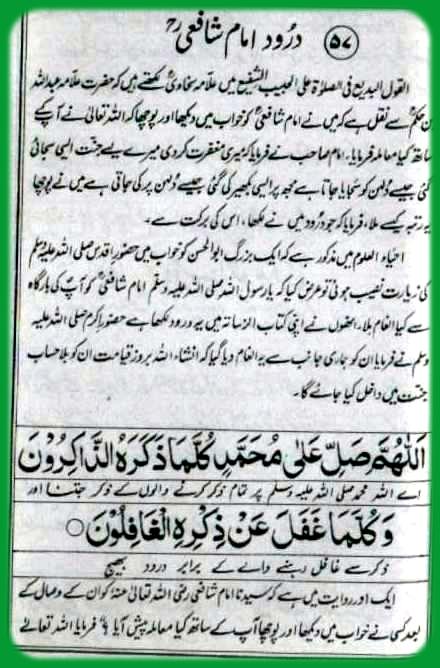 ۵۷ درود امام شافعیؒ
القول البدیع فی الصلاۃ علی الحبیب الشفیع میں علامہ سخاویؒ لکھتے ہیں کہ حضرت علامہ عبداللہ
بن حکمؒ سے نقل ہے کہ میں نے امام شافعیؒ کو خواب میں دیکھا اور پوچھا کہ اللہ تعالیٰ نے آپکے
ساتھ کیا معاملہ فرمایا۔ امام صاحب نے فرمایا کہ میری مغفرت کر دی میرے لیے جنت ایسی سجائی
گئی جیسے دلہن کو سجایا جاتا ہے مجھ پر ایسی بکھیر کی گئی جیسے دلہن پر کی جاتی ہے میں نے پوچھا
یہ رتبہ کیسے ملا، فرمایا کہ جو درود میں نے لکھا، اس کی برکت سے۔
احیاء العلوم میں مذکور ہے کہ ایک بزرگ ابوالحسن کو خواب میں حضور اقدس صلی اللہ علیہ وسلم
کی زیارت نصیب ہوئی تو عرض کیا کہ یا رسول اللہ صلی اللہ علیہ وسلم امام شافعیؒ کو آپ کی بارگاہ
سے کیا انعام ملا، انھوں نے اپنی کتاب الرسالتہ میں یہ درود لکھا ہے حضور اکرم صلی اللہ علیہ
وسلم نے فرمایا ان کو ہماری جانب سے یہ انعام دیا گیا کہ انشاء اللہ بروز قیامت ان کو بلا حساب
جنت میں داخل کیا جائے گا۔
اَللّٰهُمَّ صَلِّ عَلٰى مُحَمَّدٍ كُلَّمَا ذَكَرَهُ الذَّاكِرُوْنَ
اے اللہ محمد صلی اللہ علیہ وسلم پر تمام ذکر کرنے والوں کے ذکر جتنا اور
وَكُلَّمَا غَفَلَ عَنْ ذِكْرِهِ الْغَافِلُوْنَ ○
ذکر سے غافل رہنے والے کے برابر درود بھیج
ایک اور روایت میں ہے کہ سیدنا امام شافعی رضی اللہ تعالیٰ عنہٗ کو ان کے وصال کے
بعد کسی نے خواب میں دیکھا اور پوچھا آپ کے ساتھ کیا معاملہ پیش آیا؟ فرمایا اللہ تعالےٰ